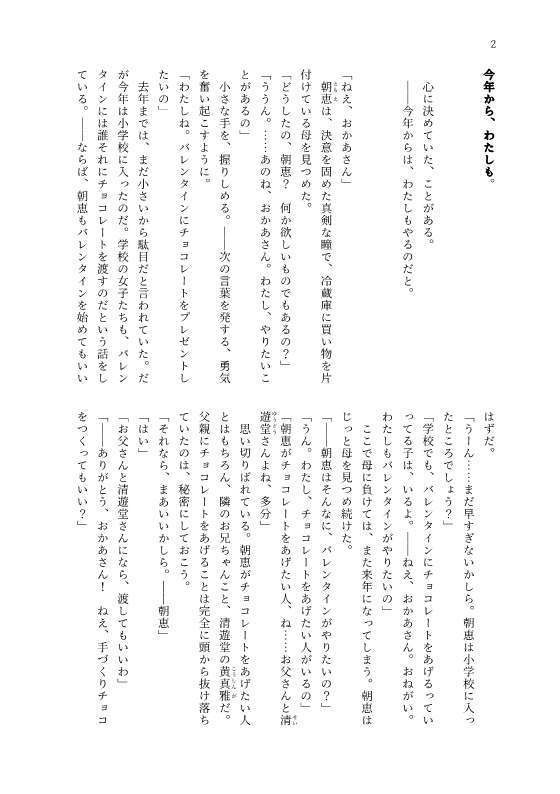 2
今年から、わたしも。
心に決めていた、ことがある。
――今年からは、わたしもやるのだと。
「ねえ、おかあさん」
朝恵は、決意を固めた真剣な瞳で、冷蔵庫に買い物を片
付けている母を見つめた。
「どうしたの、朝恵？　何か欲しいものでもあるの？」
「ううん。……あのね、おかあさん。わたし、やりたいこ
とがあるの」
小さな手を、握りしめる。――次の言葉を発する、勇気
を奮い起こすように。
「わたしね。バレンタインにチョコレートをプレゼントし
たいの」
去年までは、まだ小さいから駄目だと言われていた。だ
が今年は小学校に入ったのだ。学校の女子たちも、バレン
タインには誰それにチョコレートを渡すのだという話をし
ている。――ならば、朝恵もバレンタインを始めてもいい
はずだ。
「うーん……まだ早すぎないかしら。朝恵は小学校に入っ
たところでしょう？」
「学校でも、バレンタインにチョコレートをあげるってい
ってる子は、いるよ。――ねえ、おかあさん。おねがい。
わたしもバレンタインがやりたいの」
ここで母に負けては、また来年になってしまう。朝恵は
じっと母を見つめ続けた。
「――朝恵はそんなに、バレンタインがやりたいの？」
「うん。わたし、チョコレートをあげたい人がいるの」
「朝恵がチョコレートをあげたい人、ね……お父さんと清
遊堂さんよね、多分」
思い切りばれている。朝恵がチョコレートをあげたい人
とはもちろん、隣のお兄ちゃんこと、清遊堂の黄真雅だ。
父親にチョコレートをあげることは完全に頭から抜け落ち
ていたのは、秘密にしておこう。
「それなら、まあいいかしら。――朝恵」
「はい」
「お父さんと清遊堂さんになら、渡してもいいわ」
「――ありがとう、おかあさん！　ねえ、手づくりチョコ
をつくってもいい？」